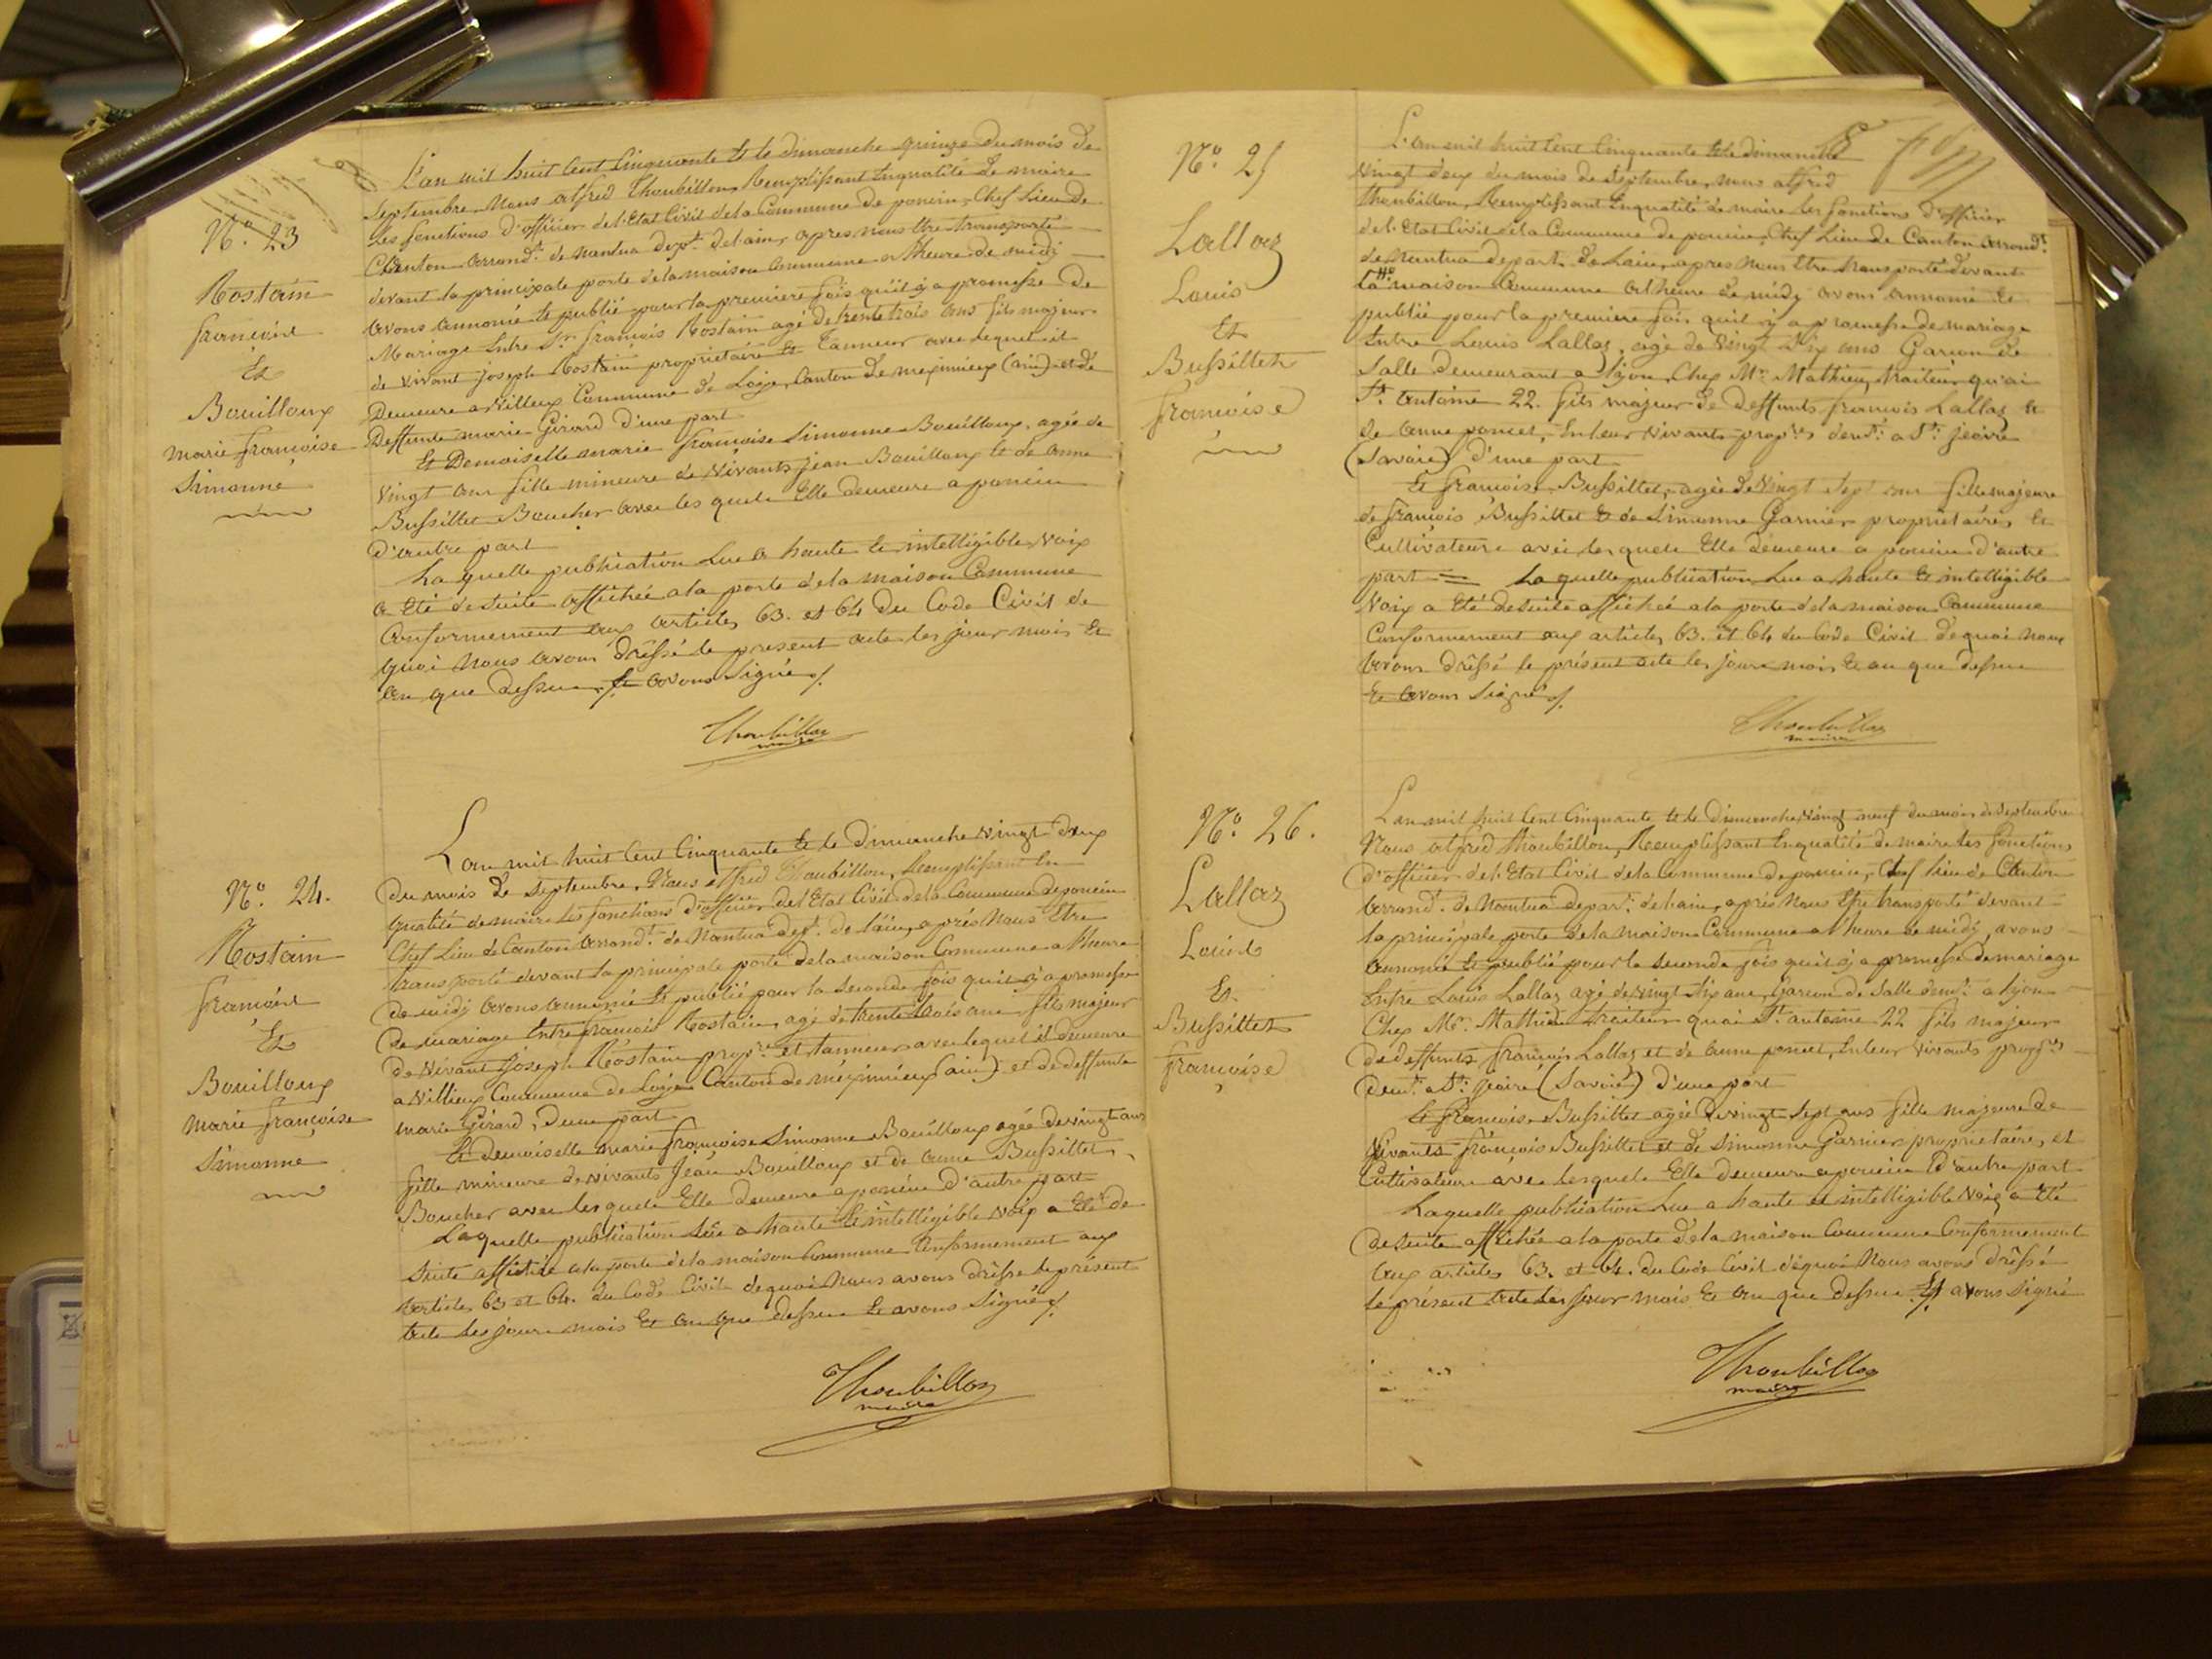 N.° 23
Rostain
françois
Et
Bouilloux
marie françoise
Simonne
L'an mil huit Cent Cinquante Et le dimanche quinze du mois de
Septembre, Nous alfred Thoubillon, Remplissant Enqualité de maire
Les fonctions d'officier del'Etat Civil dela Commune de poncin, Chef Lieu de
Canton arrond.t de nantua dep.t delain, apres nous Etre transporté
devant la principale porte dela maison Commune a lheure de midi
avons annoncé et publié pour la premiere fois qu'il y a promesse De
Mariage Entre S.r françois Rostain agé de trente trois ans fils majeur
de vivant joseph Rostain propriétaire Et Tanneur avec lequel il
Demeure a villieux Commune de Loyes Canton de meximieux (ain) et de
Deffunte marie Girard d'une part
Et Demoiselle marie françoise Simonne Bouilloux, agée de
Vingt ans fille mineure de Vivants jean Bouilloux Et de anne
Bussillet Boucher avec les quels Elle demeure a poncin
d'autre part
La quelle publication Lue a haute Et intelligible Voix
a Eté desuite affichée ala porte dela maison Commune
Conformement aux articles 63. et 64 du Code Civil de
quoi nous avons dréssé le present acte les jour mois Et
an que dessus, Et avons Signé./.
Thoubillon
maire
N.° 24.
Rostain
françois
Et
Bouilloux
marie françoise
Simonne
L'an mil huit Cent Cinquante Et le Dimanche Vingt deux
du mois de septembre, Nous alfred Thoubillon, Remplissant En
qualité de maire Les fonctions d'officier del'Etat Civil dela Commune deponcin
Chef Lieu de Canton arrond.t de Nantua dep.t de l'ain, après Nous Etre
transporté devant la principale porte dela maison Commune a lheure
de midi avons annoncé Et publié pour la seconde fois qu'il y a promesse
De mariage Entre françois Rostain, agé de trente trois ans fils majeur
de Vivant Joseph Rostain prop.re et tanneur avec lequel il demeure
a Villieux Commune de Loyes Canton de meximieux (ain) et de deffunte
marie Girard, D'une part
Et demoiselle marie françoise Simonne Bouilloux agée de vingt ans
fille mineure de vivants Jean Bouilloux et de anne Bussillet,
Boucher avec les quels Elle Demeure a poncin D'autre part
Laquelle publication Lüe a haute Et intelligible Voix a Eté de
Suite affichée ala porte dela maison Commune Conformement aux
articles 63 et 64. du Code Civil de quoi nous avons dréssé le présent
acte Les jours mois Et an que dessus Et avons Signé./.
Thoubillon
maire
N.° 25
Lallaz
Louis
Et
Bussillet
françoise
L'an mil huit Cent Cinquante Et le dimanche
Vingt deux du mois de Septembre, nous alfred
Thoubillon, Remplissant Enqualité de maire Les fonctions d'officier
del'Etat Civil dela Commune de poncin, Chef Lieu de Canton Arrond.t
de Nantua depart. de Lain, apres Nous Etre transporté devant
la maison Commune a lheure de midy avons annoncé Et
publié pour la premiere fois quil y a promesse de mariage
Entre Louis Lallaz, agé de Vingt Six ans Garcon de
Salle demeurant a lyon, Chez M.r Mathieu, traiteur quai
S.t Antoine 22. fils majeur de Deffunts francois Lallaz Et
de anne poncet, En leur Vivants prop.res dem.t a S.t jeoire
(Savoie) d'une part
Et françoise Bussillet, agée de Vingt Sept ans fille majeure
de françois Bussillet Et de Simonne Garnier propriétaires Et
Cultivateurs avec les quels Elle demeure a poncin d'autre
part = La quelle publication Lue a haute Et intelligible
Voix a Eté desuite affichée ala porte dela maison Commune
Conformement aux articles 63. et 64 du Code Civil de quoi nous
avons dréssé le présent acte les jours mois Et an que dessus
Et avons Signé./.
Thoubillon
maire
N.° 26.
Lallaz
Louis
Et
Bussillet
françoise
L'an mil huit Cent Cinquante Et le Dimanche Vingt neuf du mois de Septembre
Nous alfred Thoubillon, Remplissant Enqualité de maire Les fonctions
d'officier del'Etat Civil dela Commune de poncin, Chef lieu de Canton
arrond.t de Nantua depar.t delain, après Nous Etre transporté devant
la principale porte dela maison Commune a lheure de midi, avons
annoncé Et publié pour la seconde fois quil y a promesse de mariage
Entre Louis Lallaz agé de Vingt Six ans, Garcon de Salle dem.t a Lyon
Chez M.r Mathieu traiteur quai S.t antoine 22 fils majeur
de deffunts françois Lallaz et de anne poncet, En leur Vivants prop.res
dem.t a S.t Jeoire (Savoie) D'une part
Et françoise Bussillet agée de vingt Sept ans fille majeure de
Vivants françois Bussillet et de Simonne Garnier propriétaires, et
Cultivateurs avec lesquels Elle Demeure a poncin D'autre part
Laquelle publication Lue a haute et intelligible Voix a Eté
desuite affichée ala porte dela maison Commune Conformement
aux articles 63. et 64. du Code Civil de quoi Nous avons dréssé
le présent acte Les jour mois Et an que Dessus Et avons signé
Thoubillon
maire